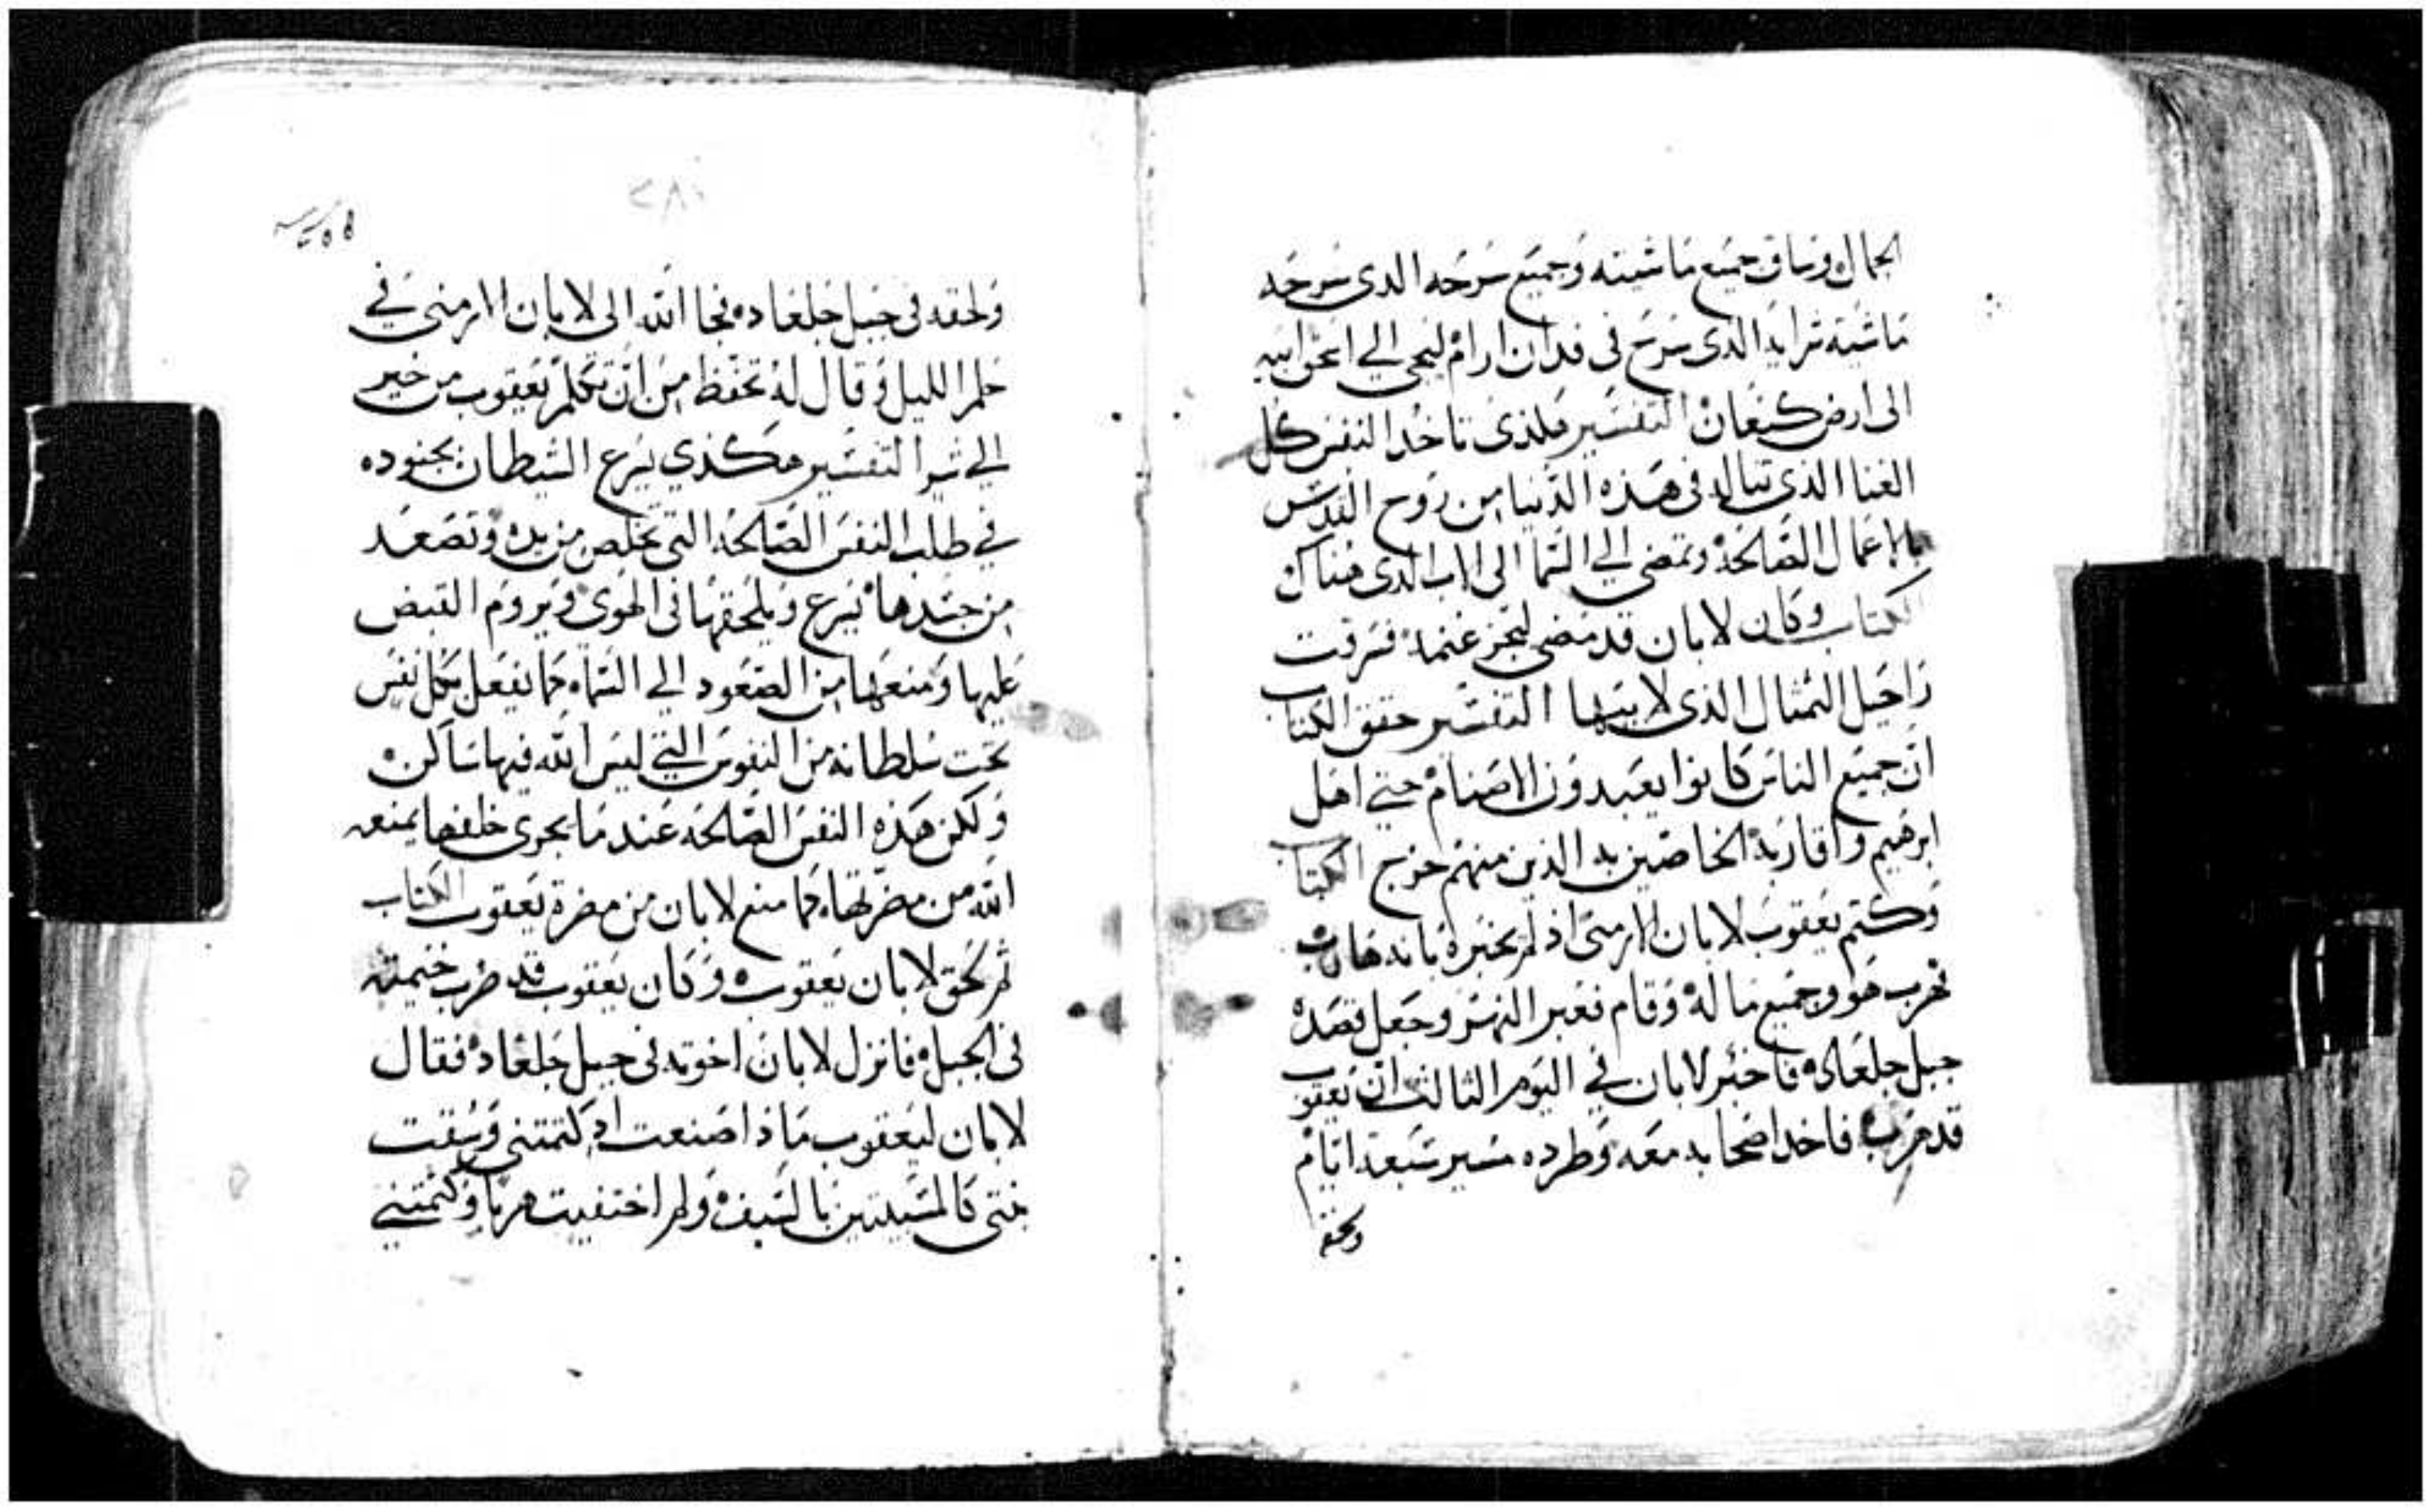 الجمال وساق جميع ماشيته وجميع سرحه الدى سرحه
ماشيته شرايه الدى سرح فى فدان ارام ليجى الي اسحق ابيه
الى ارض كنعان التفسير هكذى تاخد النفس كل
الغنا الذي تناله فى هذه الدنيا من روح القدس
بالاعمال الصالحه وتمضي الي السما الى الاب الدى هناك
الكتاب وكان لابان قد مضي ليجز غنمه فسرقت
راحيل التمثال الذى لابيها التفسير حقق الكتاب
ان جميع الناس كانوا يعبدون الاصنام حتي اهل
ابرهيم واقاربه الخاصين به الذين منهم خرج الكتاب
وكتم يعقوب لابان الارمنى اذ لم يخبره بانه هارب
فهرب هو وجميع ما له وقام فعبر النهر وجعل قصده
جبل جلعاد فاخبر لابان في اليوم الثالث ان يعقوب
قد هرب فاخد اصحابه معه وطرده مسير سبعة ايام
ولحقه
٢٨٠
ولحقه فى جبل جلعاد فجا الله الى لابان الارمنى في
حلم الليل وقال له تحفظ من ان تكلم يعقوب من خير
الي شر التفسير هكذي يسرع الشيطان بجنوده
في طلب النفس الصالحه التى تخلص من يده وتصعد
من جسدها يسرع ويلحقها فى الهوى ويروم القبض
عليها ومنعها من الصعود الي السماء كما يفعل بكل نفس
تحت سلطانه من النفوس التي ليس الله فيها ساكن
ولكن هذه النفس الصالحه عند ما يجرى خلفها يمنعه
الله من مضرتها كما منع لابان من مضرة يعقوب الكتاب
ثم لحق لابان يعقوب وكان يعقوب قد ضرب خيمته
فى الجبل فانزل لابان اخوته فى جبل جلعاد فقال
لابان ليعقوب ماذا صنعت اد كتمتنى وسقت
بنتى كالمسبيتين بالسيف ولم اختفيت هربا وكتمتني